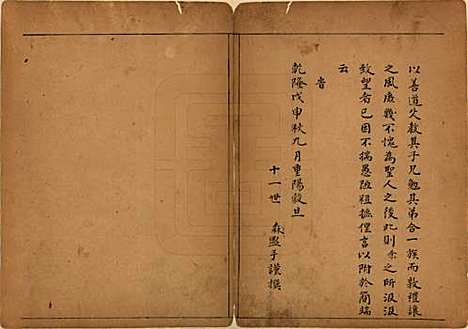 以善道父教其子兄勉其弟合一族而敦禮讓
之風庶幾不愧為聖人之後此則余之所汲汲
致望者已因不揣愚陋粗摭俚言以附於簡端
云
旹
乾隆戊申秋九月重陽穀旦
十一世 森 子謹撰